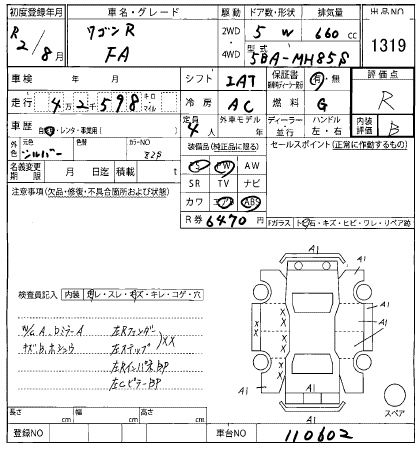 初度登録年月 車名・グレード 駆動 ドア数・形状 排気量 出品NO
R2/8月 ワゴンR FA 2WD 5 W 660 cc 1319
4WD 型式 5BA-MH85S
車検 年 月 シフト IAT 保証書 有・無 評価点
走行 4万2千598 キロ マイル 冷房 AC 燃料 G R
車歴 自家・レンタ・事業用( ) 定員 4人 外車モデル 年 ディーラー・並行 ハンドル 左・右 内装評価 B
外色 元色 シルバー 色替 カラーNO 装備品(純正品に限る) セールスポイント(正常に作動するもの)
名義変更期限 月 日迄 積載 t PS PW AW
SR TV ナビ
注意事項(欠品・修復・不具合箇所および状態) カワ エアB ABS
R券 6470円 Fガラス ト石・キズ・ヒビ・ワレ・リペア跡
A1
A1 A1
A1
検査員記入 内装 コレ・スレ・キズ・キレ・コゲ・穴
A、Dミラー A 左Rフェンダー XX
キズB、ホシュウ 左ステップ
左RインパネBP
左CピラーBP
A1
A1 A1
A1
スペア
長さ cm 幅 cm 高さ cm
登録NO 車台NO 110602